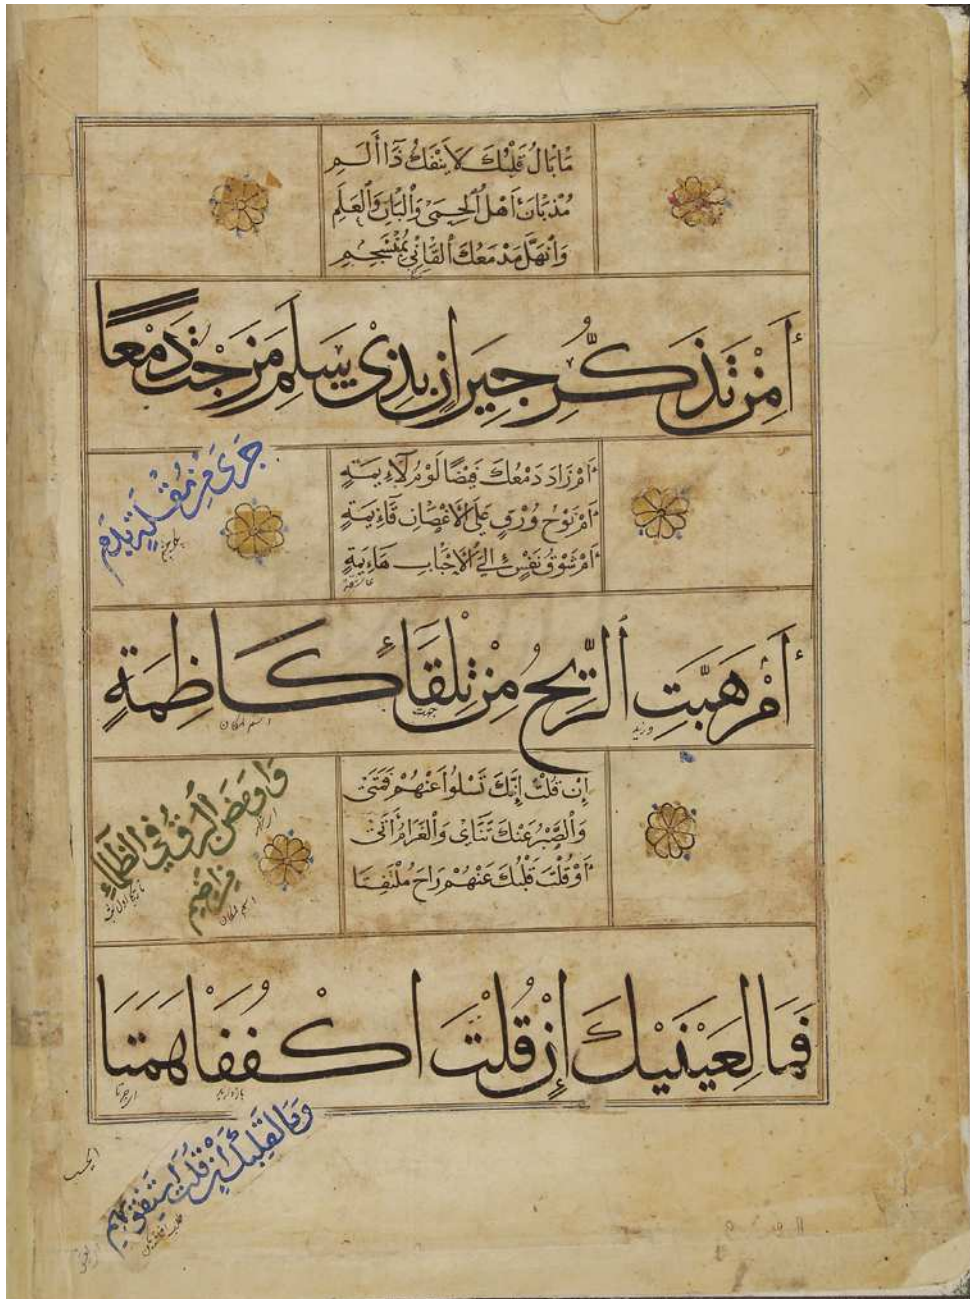 مَا بَالُ قَلْبُكَ لَا يَنْفَكُ ذَا أَلَمِ
مُذْ بَانَ اَهْلُ الْحِمَى وَالْبَانِ وَالْعَلَمِ
وَانْهَلَّ مَدْمَعُكَ الْقَانِي بِمُنْسَجِمِ
أَمِنْ تَذَكُّرِ جِيرَانٍ بِذِي سَلَمٍ مَزَجْتَ دَمْعًا
جَرَى مِنْ مُقْلَةٍ بِدَمِ
أَمْ زَادَ دَمْعُكَ فَيْضًا لَوْمُ لَائِمَةٍ
أَمْ نَوْحُ وُرْقٍ عَلَى الْاَغْصَانِ قَائِمَةٍ
أَمْ شَوْقُ نَفْسٍ اِلَى الْاَحْبَابِ هَائِمَةٍ
أَمْ هَبَّتِ الرِّيحُ مِنْ تِلْقَاءِ كَاظِمَةٍ
وزید
اسم مکان
وَاَوْمَضَ الْبَرْقُ فِي الظَّلْمَاءِ
مِنْ اِضَمِ
اسم مکان
إِنْ قُلْتَ إِنَّكَ تَسْلُوا عَنْهُمْ فَمَتَى
وَالصَّبْرُ عَنْكَ تَنَاىٰ وَالْغَرَامُ أَتَى
أَوْ قُلْتَ قَلْبُكَ عَنْهُمْ رَاحَ مُلْتَفِتَا
فَمَا لِعَيْنَيْكَ إِنْ قُلْتَ اكْفُفَا هَمَتَا
وَمَا لِقَلْبِكَ إِنْ قُلْتَ اسْتَفِقْ يَهِمِ
ایحسب